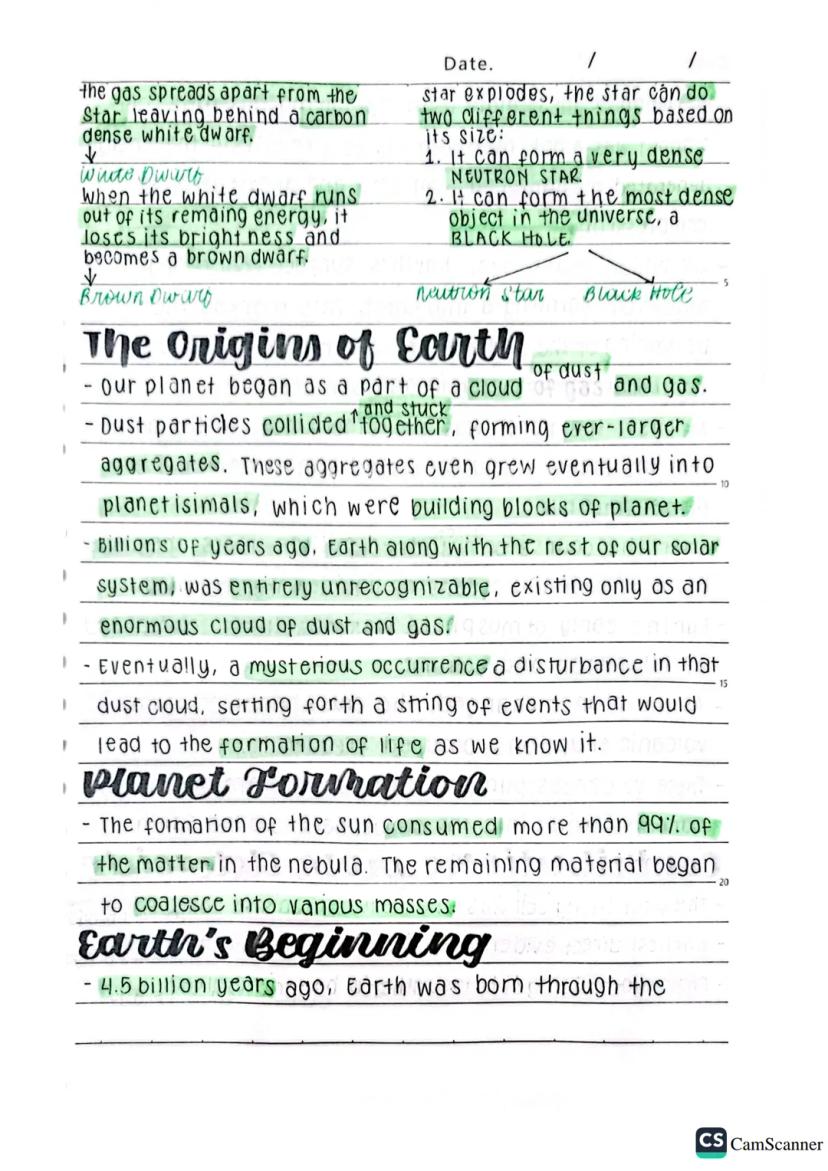 Date. / /
the gas spreads apart from the
Star, leaving behind a carbon
dense white dwarf.
↓
White Dwarf
When the white dwarf runs
out of its remaing energy, it
loses its brightness and
becomes a brown dwarf.
↓
Brown Dwarf
star explodes, the star can do
two different things based on
its size:
1. It can form a very dense
NEUTRON STAR.
2. It can form the most dense
object in the universe, a
BLACK HOLE.
5
Neutron Star Black Hole
The Origins of Earth
- Our planet began as a part of a cloud of dust and gas.
- Dust particles collided ↑and stuck together, forming ever-larger
aggregates. These aggregates even grew eventually into
10
planetisimals, which were building blocks of planet.
- Billions of years ago, Earth along with the rest of our solar
system, was entirely unrecognizable, existing only as an
enormous cloud of dust and gas.
- Eventually, a mysterious occurrence a disturbance in that
15
dust cloud, setting forth a string of events that would
lead to the formation of life as we know it.
Planet Formation
- The formation of the sun consumed more than 99% of
the matter in the nebula. The remaining material began
20
to coalesce into various masses.
Earth's Beginning
- 4.5 billion years ago, Earth was born through the
CS CamScanner